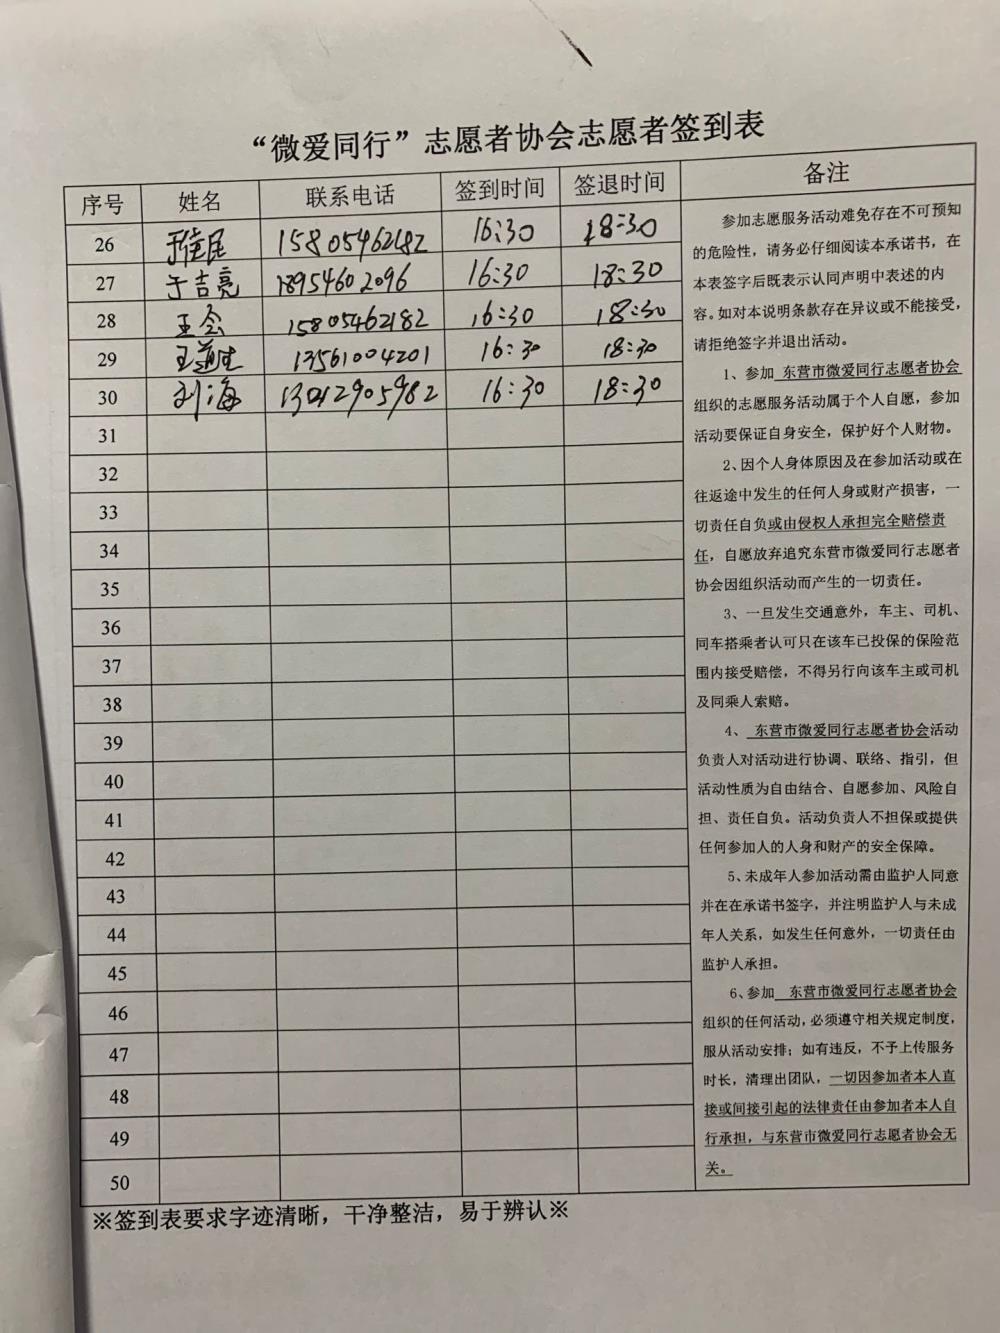 “微爱同行”志愿者协会志愿者签到表
序号 姓名 联系电话 签到时间 签退时间 备注
26 15805462182 16:30 18:30
27 于吉亮 18954602096 16:30 18:30
28 王会 15805462182 16:30 18:30
29 王道生 13561004201 16:30 18:30
30 刘海 13012905982 16:30 18:30
31
32
33
34
35
36
37
38
39
40
41
42
43
44
45
46
47
48
49
50
参加志愿服务活动难免存在不可预知
的危险性，请务必仔细阅读本承诺书，在
本表签字后既表示认同声明中表述的内
容。如对本说明条款存在异议或不能接受，
请拒绝签字并退出活动。
1、参加 东营市微爱同行志愿者协会
组织的志愿服务活动属于个人自愿，参加
活动要保证自身安全，保护好个人财物。
2、因个人身体原因及在参加活动或在
往返途中发生的任何人身或财产损害，一
切责任自负或由侵权人承担完全赔偿责
任，自愿放弃追究东营市微爱同行志愿者
协会因组织活动而产生的一切责任。
3、一旦发生交通意外，车主、司机、
同车搭乘者认可只在该车已投保的保险范
围内接受赔偿，不得另行向该车主或司机
及同乘人索赔。
4、 东营市微爱同行志愿者协会活动
负责人对活动进行协调、联络、指引，但
活动性质为自由结合、自愿参加、风险自
担、责任自负。活动负责人不担保或提供
任何参加人的人身和财产的安全保障。
5、未成年人参加活动需由监护人同意
并在在承诺书签字，并注明监护人与未成
年人关系，如发生任何意外，一切责任由
监护人承担。
6、参加 东营市微爱同行志愿者协会
组织的任何活动，必须遵守相关规定制度，
服从活动安排；如有违反，不予上传服务
时长，清理出团队，一切因参加者本人直
接或间接引起的法律责任由参加者本人自
行承担，与东营市微爱同行志愿者协会无
关。
※签到表要求字迹清晰，干净整洁，易于辨认※